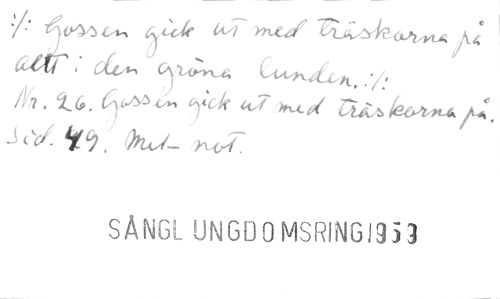 :/: Gossen gick ut med träskorna på
allt i den gröna lunden. :/:
Nr. 26. Gossen gick ut med träskorna på.
Sid. 49. Mel- not.
SÅNGL UNGDOMSRING 1959